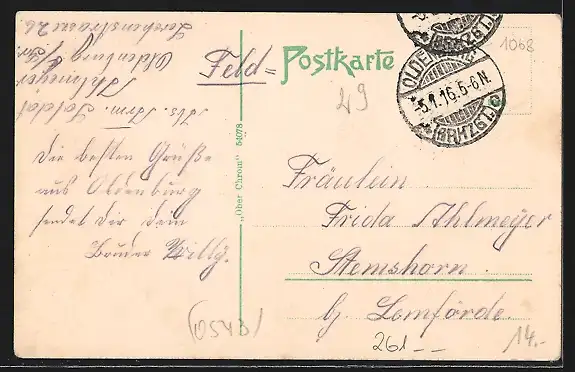 Abs. Arm. Soldat
Ahlmeyer
Oldenburg i/Gr.
Lerchenstrasse 26
Feld=
Postkarte
1068
49
OLDENBURG
-5.1.16.5-6N.
*(GRHZGT.)c
(GRHZGT.)
Die besten Grüße
aus Oldenburg
sendet dir dein
Bruder Willy.
„Ober Chrom" 54078
Fräulein
Frida Ahlmeyer
Stemshorn.
b/ Lemförde.
(0543)
261--
14.-